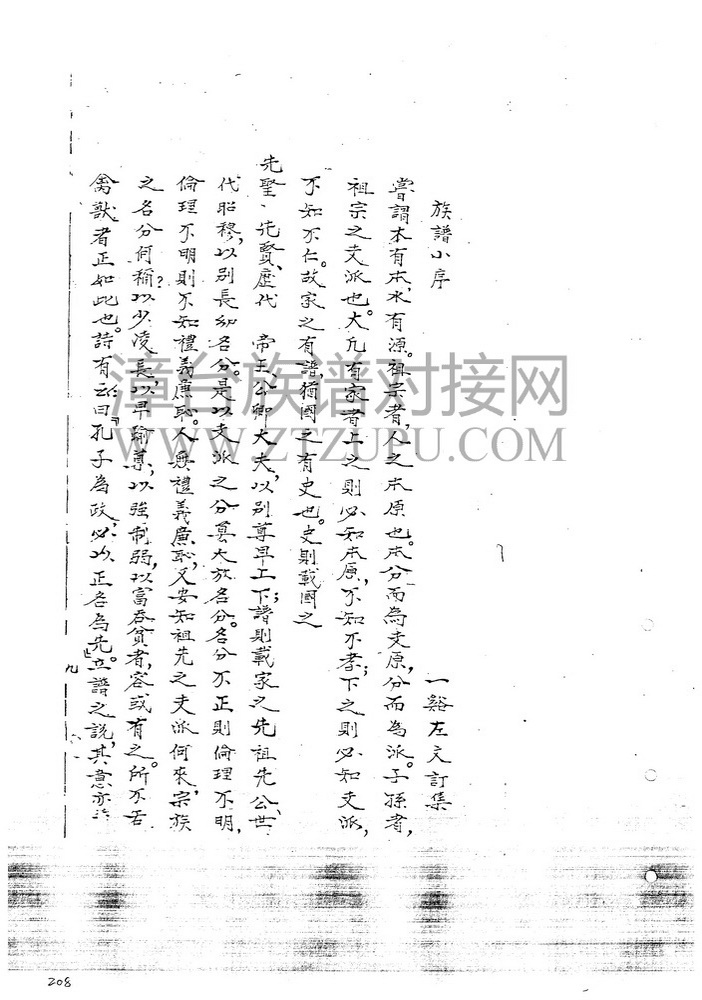 族譜小序
一谿左文訂集
嘗謂木有本,水有源。祖宗者,人之本原也。本分而為支原,分而為派。子孫者,
祖宗之支派也。大凡有家者上之則必知本原,不知不孝;下之則必知支派,
不知不仁。故家之有譜,猶國之有史也。史則載國之
先聖、先賢、歷代 帝王、公卿大夫,以別尊卑上下;譜則載家之先祖先公、世
代昭穆,以別長幼名分。是以支派之分莫大於名分。名分不正則倫理不明,
倫理不明則不知禮義廉恥。人無禮義廉恥,又安知祖先之支派何來,宗族
之名分何稱?以少凌長,以卑踰尊,以強制弱,以富吞貧者,容或有之。所不若
禽獸者正如此也。詩有云曰『孔子為政,必以正名為先』。立譜之說,其意亦
九
208
漳台族谱对接网
WWW.ZTZUPU.COM